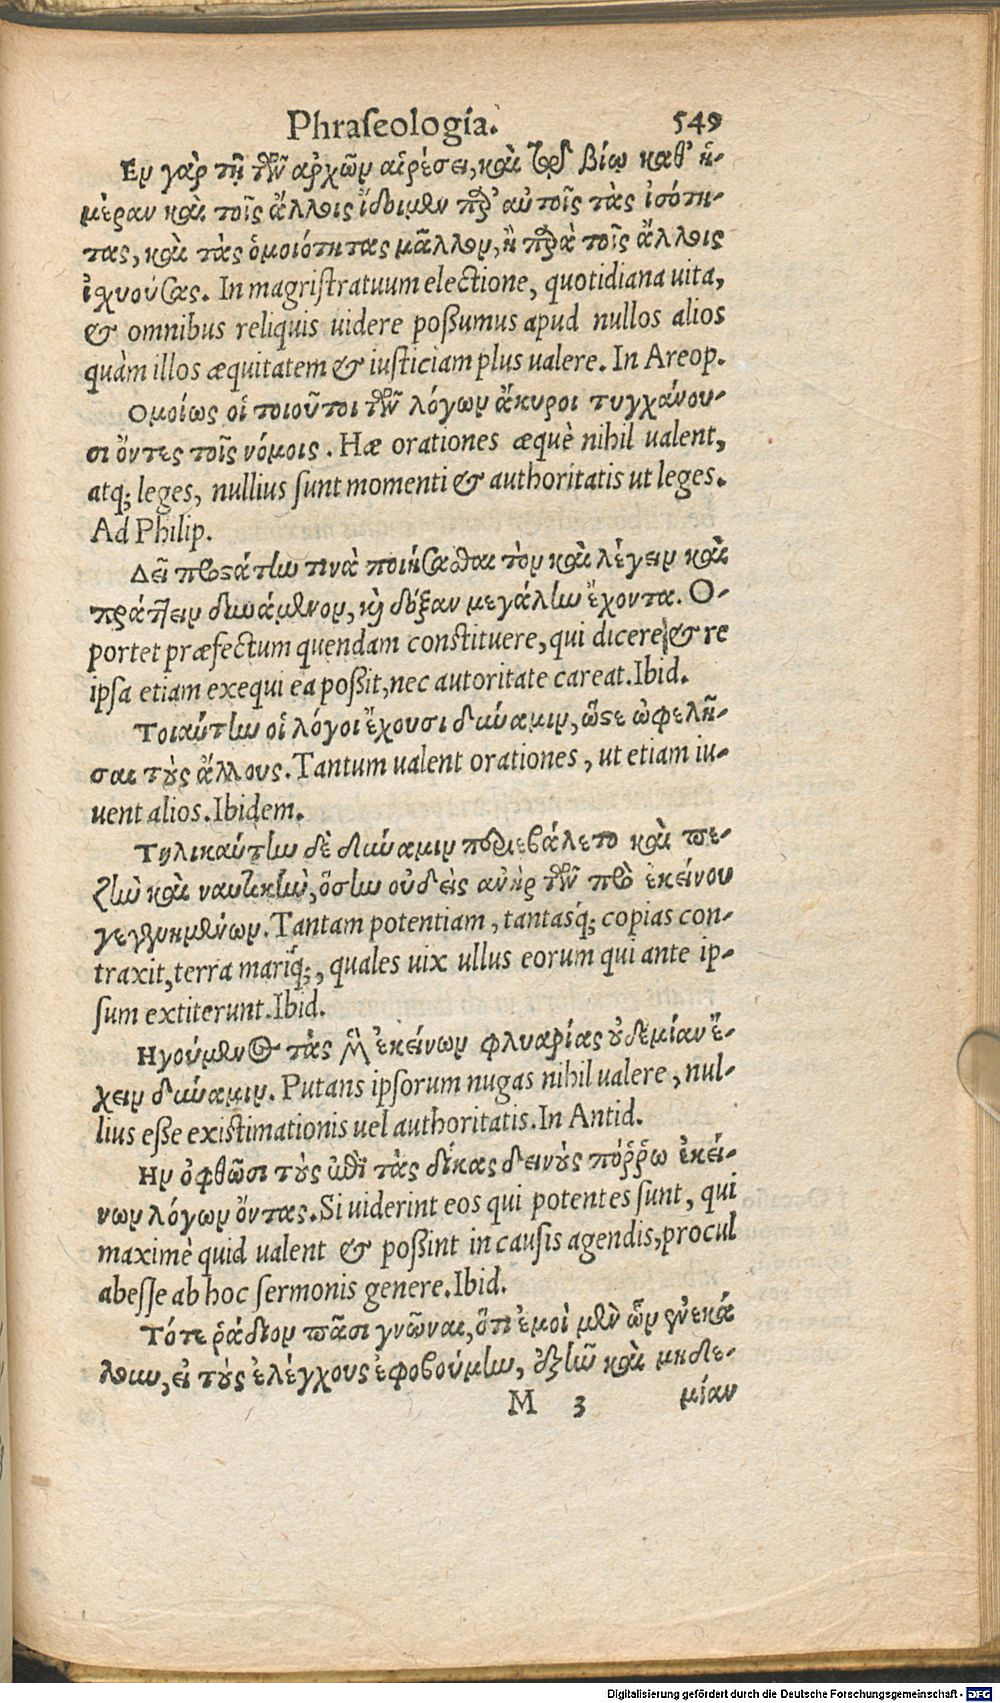 Phraſeologia. 549
Εν γὰρ τῇ τῶν ἀρχῶν αἱρέσει, καὶ τῷ βίῳ καθ' ἡ-
μέραν καὶ τοῖς ἄλλοις ἴδοιμεν παρ' αὐτοῖς τὰς ἰσότη-
τας, καὶ τὰς ὁμοιότητας μᾶλλον, ἢ παρὰ τοῖς ἄλλοις
ἰχυούσας. In magriſtratuum electione, quotidiana uita,
& omnibus reliquis uidere poßumus apud nullos alios
quàm illos æquitatem & iuſticiam plus ualere. In Areop.
Ομοίως οἱ τοιοῦτοι τῶν λόγων ἄκυροι τυγχάνου-
σι ὄντες τοῖς νόμοις. Hæ orationes æquè nihil ualent,
atq; leges, nullius ſunt momenti & authoritatis ut leges.
Ad Philip.
Δεῖ προστάτην τινὰ ποιήσασθαι τὸν καὶ λέγειν καὶ
πράττειν δυνάμενον, καὶ δόξαν μεγάλην ἔχοντα. O-
portet præfectum quendam conſtituere, qui dicere & re
ipſa etiam exequi ea poßit, nec autoritate careat. Ibid.
Τοιαύτην οἱ λόγοι ἔχουσι δύναμιν, ὥστε ὠφελῆ-
σαι τοὺς ἄλλους. Tantum ualent orationes, ut etiam iu-
uent alios. Ibidem.
Τηλικαύτην δὲ δύναμιν περιεβάλετο καὶ πε-
ζὴν καὶ ναυτικὴν, ὅσην οὐδεὶς ἀνὴρ τῶν πρὸ ἐκείνου
γεγενημένων. Tantam potentiam, tantasq́; copias con-
traxit, terra mariq́;, quales uix ullus eorum qui ante ip-
ſum extiterunt. Ibid.
Ηγούμενος τὰς μὲν ἐκείνων φλυαρίας οὐδεμίαν ἔ-
χειν δύναμιν. Putans ipſorum nugas nihil ualere, nul-
lius eſſe exiſtimationis uel authoritatis. In Antid.
Ην ὀφθῶσι τοὺς ἐπὶ τὰς δίκας δεινοὺς πόῤῥω ἐκεί-
νων λόγων ὄντας. Si uiderint eos qui potentes ſunt, qui
maximè quid ualent & poßint in cauſis agendis, procul
abeſſe ab hoc ſermonis genere. Ibid.
Τότε ῥᾴδιον πᾶσι γνῶναι, ὅτι ἐμοὶ μὲν ὧν ἐνεκά
λουν, εἰ τοὺς ἐλέγχους ἐφοβούμην, ἐξῆν καὶ μηδε-
M 3 μίαν
Digitalisierung gefördert durch die Deutsche Forschungsgemeinschaft - DFG